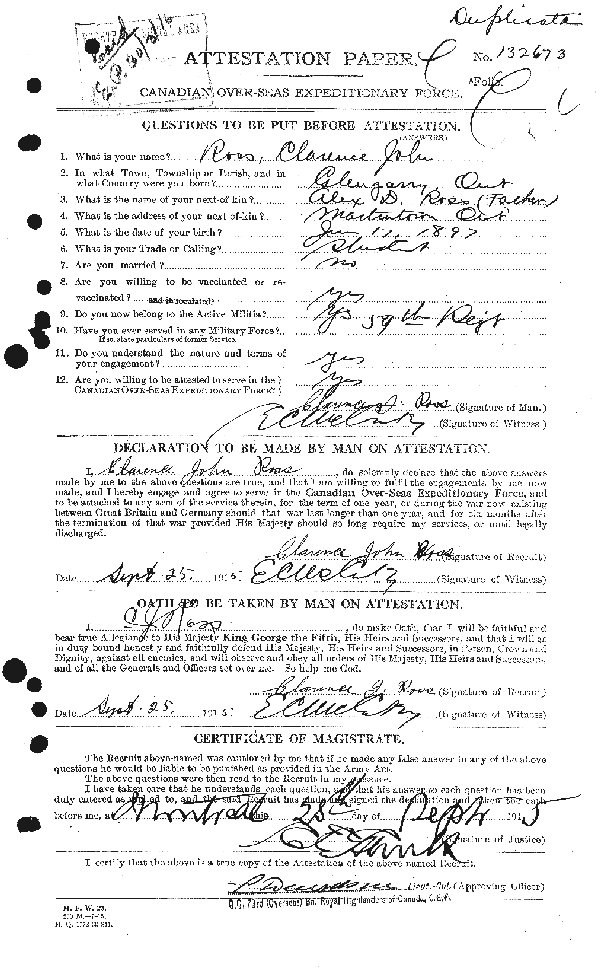 Duplicate
ATTESTATION PAPER.
No. 132673
Folio.
CANADIAN OVER-SEAS EXPEDITIONARY FORCE.
QUESTIONS TO BE PUT BEFORE ATTESTATION.
(ANSWERS)
1. What is your name? Ross, Clarence John
2. In what Town, Township or Parish, and in what Country were you born? Glengarry Ont
3. What is the name of your next-of-kin? Alex D. Ross (Father)
4. What is the address of your next-of-kin? Martintown Ont
5. What is the date of your birth? 1897
6. What is your Trade or Calling? Student
7. Are you married? no
8. Are you willing to be vaccinated or re-
vaccinated? and inoculated? yes
9. Do you now belong to the Active Militia? Yes 59th Regt
10. Have you ever served in any Military Force?
If so, state particulars of former Service.
11. Do you understand the nature and terms of
your engagement? yes
12. Are you willing to be attested to serve in the
CANADIAN OVER-SEAS EXPEDITIONARY FORCE? yes
Clarence J. Ross (Signature of Man.)
(Signature of Witness)
DECLARATION TO BE MADE BY MAN ON ATTESTATION.
I, Clarence John Ross, do solemnly declare that the above answers
made by me to the above questions are true, and that I am willing to fulfil the engagements by me now
made, and I hereby engage and agree to serve in the Canadian Over-Seas Expeditionary Force, and
to be attached to any arm of the service therein, for the term of one year, or during the war now existing
between Great Britain and Germany should that war last longer than one year, and for six months after
the termination of that war provided His Majesty should so long require my services, or until legally
discharged.
Clarence John Ross (Signature of Recruit)
Date Sept 25. 1915. (Signature of Witness)
OATH TO BE TAKEN BY MAN ON ATTESTATION.
I, C J Ross, do make Oath, that I will be faithful and
bear true Allegiance to His Majesty King George the Fifth, His Heirs and Successors, and that I will as
in duty bound honestly and faithfully defend His Majesty, His Heirs and Successors, in Person, Crown and
Dignity, against all enemies, and will observe and obey all orders of His Majesty, His Heirs and Successors,
and of all the Generals and Officers set over me. So help me God.
Clarence J. Ross (Signature of Recruit)
Date Sept. 25. 1915. (Signature of Witness)
CERTIFICATE OF MAGISTRATE.
The Recruit above-named was cautioned by me that if he made any false answer to any of the above
questions he would be liable to be punished as provided in the Army Act.
The above questions were then read to the Recruit in my presence.
I have taken care that he understands each question, and that his answer to each question has been
duly entered as replied to, and the said Recruit has made and signed the declaration and taken the oath
before me, at Montreal this 25th day of Sept 1915
(Signature of Justice)
I certify that the above is a true copy of the Attestation of the above named Recruit.
Lieut.-Col. (Approving Officer)
O.C. 73rd (Overseas) Bn. Royal Highlanders of Canada, C.E.F.
M. F. W. 23.